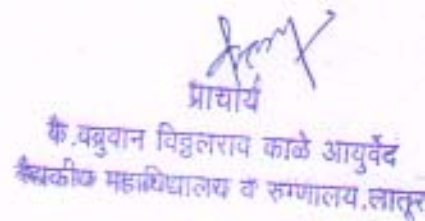 प्राचार्य
कै.वब्रुवान विठ्ठलराव काळे आयुर्वेद
वैद्यकीय महाविद्यालय व रुग्णालय,लातूर